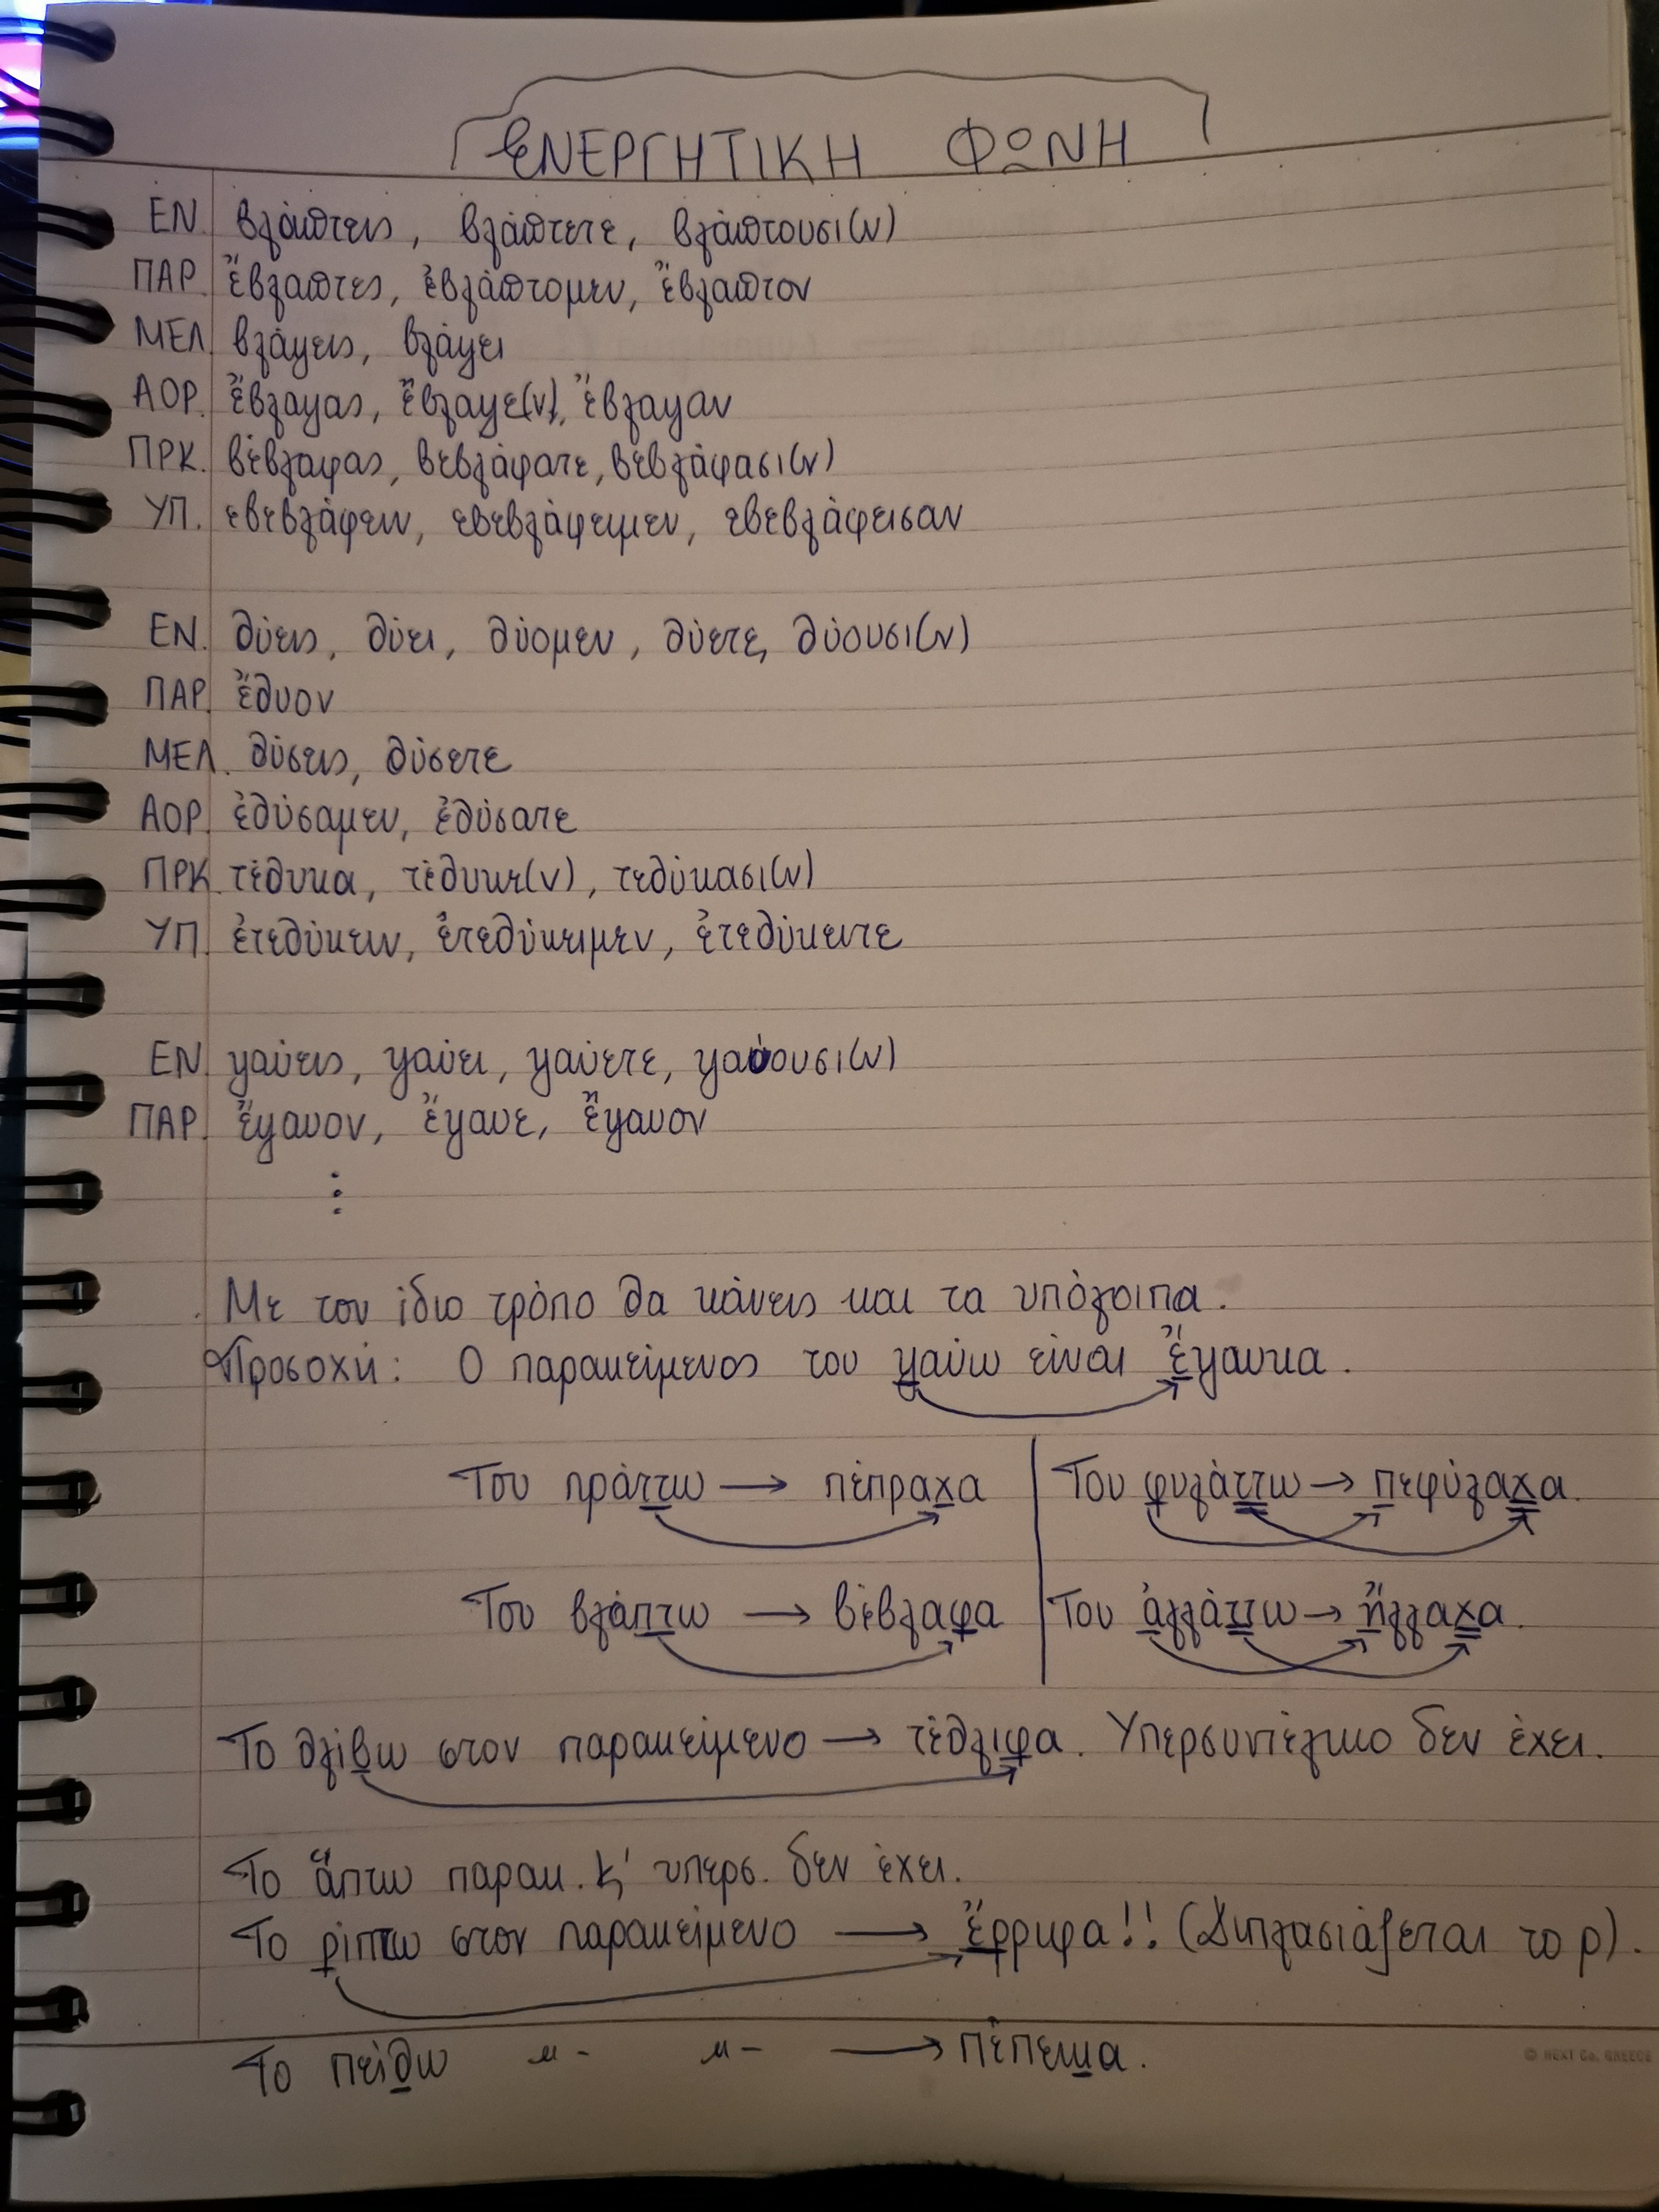 ΕΝΕΡΓΗΤΙΚΗ ΦΩΝΗ
ΕΝ. βλάπτεις, βλάπτετε, βλάπτουσι(ν)
ΠΑΡ. ἔβλαπτες, ἐβλάπτομεν, ἔβλαπτον
ΜΕΛ. βλάψεις, βλάψει
ΑΟΡ. ἔβλαψας, ἔβλαψε(ν), ἔβλαψαν
ΠΡΚ. βέβλαφας, βεβλάφατε, βεβλάφασι(ν)
ΥΠ. εβεβλάφειν, εβεβλάφειμεν, εβεβλάφεισαν
ΕΝ. θύεις, θύει, θύομεν, θύετε, θύουσι(ν)
ΠΑΡ. ἔθυον
ΜΕΛ. θύσεις, θύσετε
ΑΟΡ. ἐθύσαμεν, ἐθύσατε
ΠΡΚ. τέθυκα, τέθυκε(ν), τεθύκασι(ν)
ΥΠ. ἐτεθύκειν, ἐτεθύκειμεν, ἐτεθύκειτε
ΕΝ. ψαύεις, ψαύει, ψαύετε, ψαύουσι(ν)
ΠΑΡ. ἔψαυον, ἔψαυε, ἔψαυον
⋮
Με τον ίδιο τρόπο θα κάνεις και τα υπόλοιπα.
Προσοχή: Ο παρακείμενος του ψαύω είναι ἔψαυκα.
Του πράττω → πέπραχα | Του φυλάττω → πεφύλαχα.
Του βλάπτω → βέβλαφα | Του ἀλλάττω → ἤλλαχα.
Το θλίβω στον παρακείμενο → τέθλιφα. Υπερσυντέλικο δεν έχει.
Το ἅπτω παρακ. κ' υπερσ. δεν έχει.
Το ρίπτω στον παρακείμενο → ἔρριφα!! (Διπλασιάζεται το ρ).
Το πείθω -〃- -〃- → πέπεικα.
© NEXT Co. GREECE